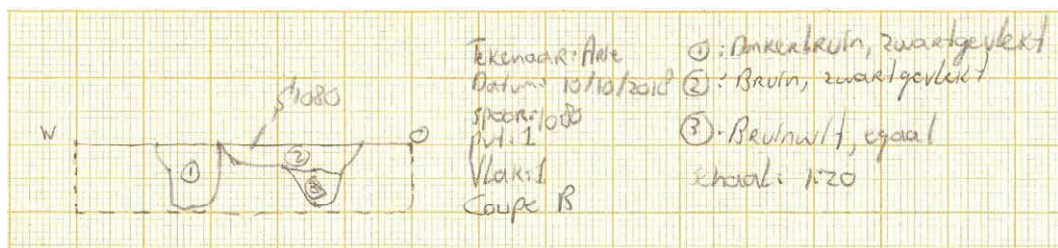 W
S1080
O
1
2
3
Tekenaar: Arie
Datum: 10/10/2018
spoor: 1080
put: 1
Vlak: 1
Coupe B
①: Donkerbruin, zwartgevlekt
②: Bruin, zwartgevlekt
③: Bruinwit, egaal
schaal: 1:20